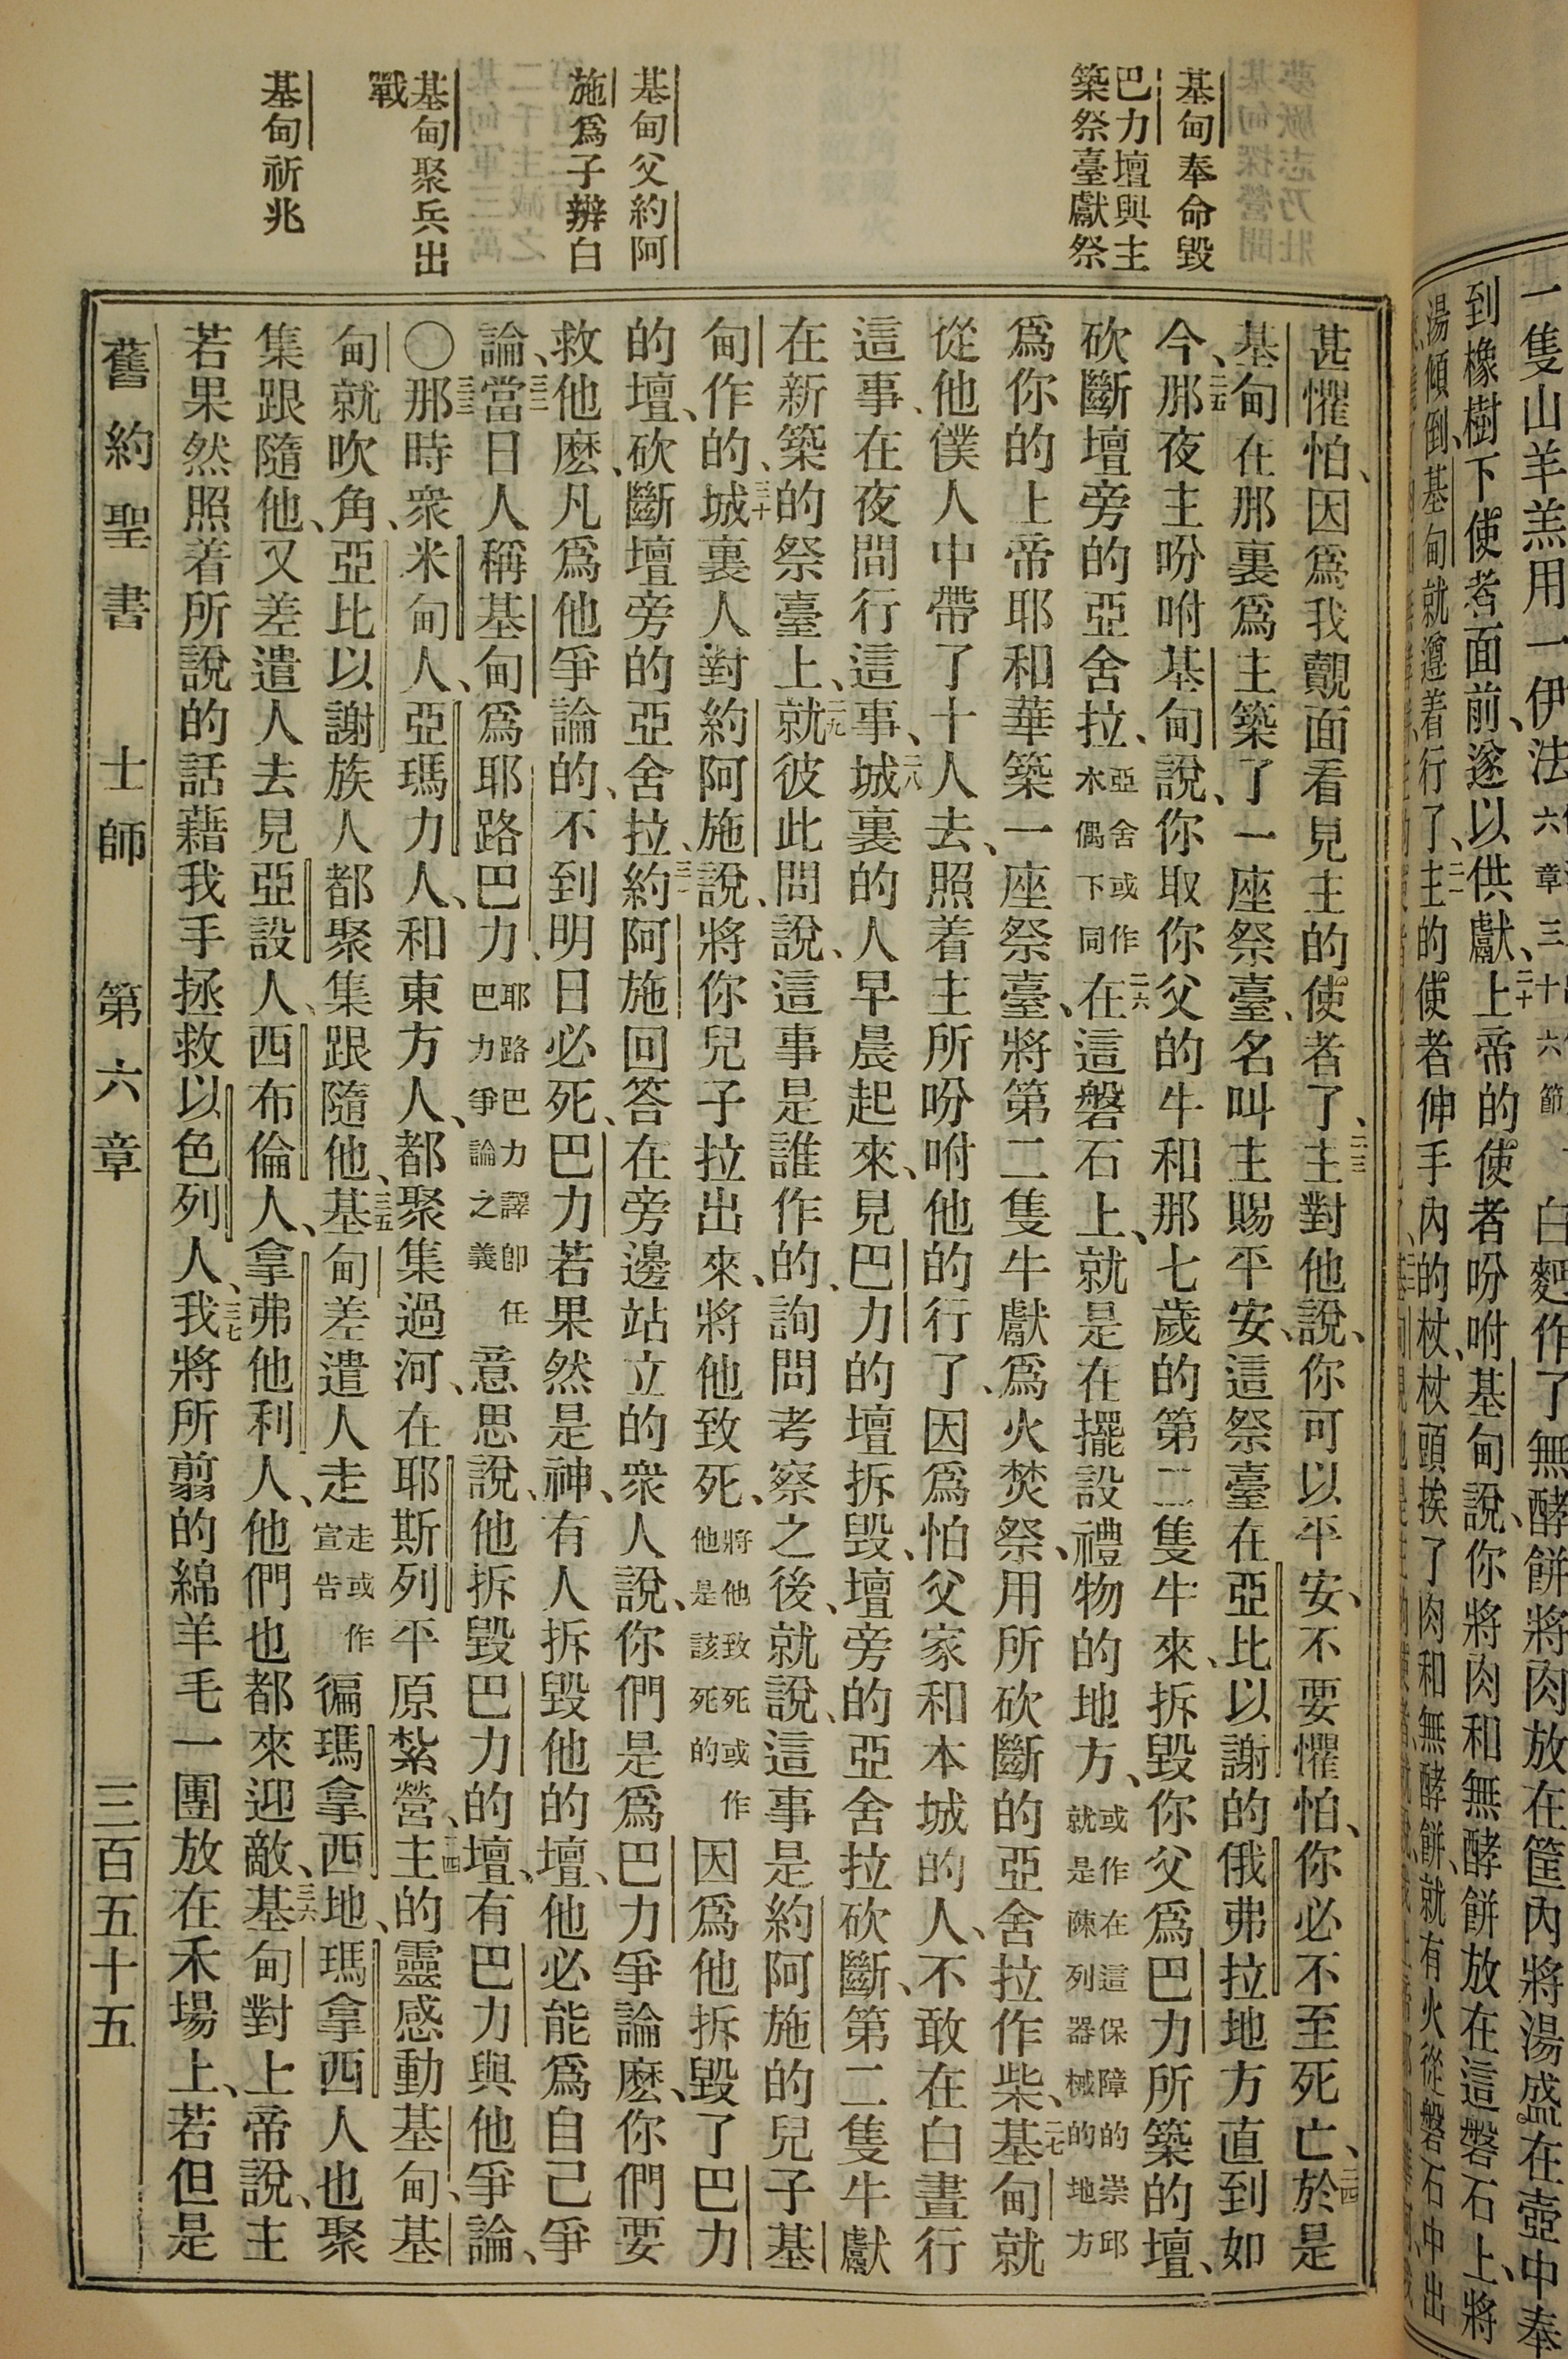 一隻山羊羔用一伊法
白麪作了無酵餅將肉放在筐內將湯盛在壺中奉
到橡樹下使者面前、遂以供獻、二十上帝的使者吩咐基甸說、你將肉和無酵餅放在這磐石上、將
湯傾倒、基甸就遵着行了、二一主的使者伸手內的杖、杖頭挨了肉和無酵餅、就有火從磐石中出
基甸奉命毀
巴力壇與主
築祭臺獻祭
基甸父約阿
施爲子辨白
基甸聚兵出
戰
基甸祈兆
甚懼怕、因爲我覿面看見主的使者了、二三主對他說、你可以平安、不要懼怕、你必不至死亡、二四於是
基甸在那裏爲主築了一座祭臺、名叫主賜平安、這祭臺在亞比以謝的俄弗拉地方直到如
今、二五那夜主吩咐基甸說、你取你父的牛和那七歲的第二隻牛來、拆毀你父爲巴力所築的壇、
砍斷壇旁的亞舍拉、亞舍或作木偶下同二六在這磐石上、就是在擺設禮物的地方、或作在這保障的崇邱就是陳列器械的地方
爲你的上帝耶和華築一座祭臺、將第二隻牛獻爲火焚祭、用所砍斷的亞舍拉作柴、二七基甸就
從他僕人中帶了十人去、照着主所吩咐他的行了、因爲怕父家和本城的人、不敢在白晝行
這事、在夜間行這事、二八城裏的人早晨起來、見巴力的壇拆毀、壇旁的亞舍拉砍斷、第二隻牛獻
在新築的祭臺上、二九就彼此問說、這事是誰作的、詢問考察之後、就說、這事是約阿施的兒子基
甸作的、三十城裏人對約阿施說、將你兒子拉出來、將他致死、將他致死或作他是該死的因爲他拆毀了巴力
的壇、砍斷壇旁的亞舍拉、三一約阿施回答在旁邊站立的衆人說、你們是爲巴力爭論麽、你們要
救他麽、凡爲他爭論的、不到明日必死、巴力若果然是神、有人拆毀他的壇、他必能爲自己爭
論、三二當日人稱基甸爲耶路巴力、耶路巴力譯卽任巴力爭論之義意思說、他拆毀巴力的壇、有巴力與他爭論、
〇三三那時衆米甸人、亞瑪力人、和東方人、都聚集過河、在耶斯列平原紮營、三四主的靈感動基甸、基
甸就吹角、亞比以謝族人都聚集跟隨他、三五基甸差遣人走走或作宣告徧瑪拿西地、瑪拿西人也聚
集跟隨他、又差遣人去見亞設人、西布倫人、拿弗他利人、他們也都來迎敵、三六基甸對上帝說、主
若果然照着所說的話藉我手拯救以色列人、三七我將所翦的綿羊毛一團放在禾場上、若但是
舊約聖書 士師 第六章 三百五十五